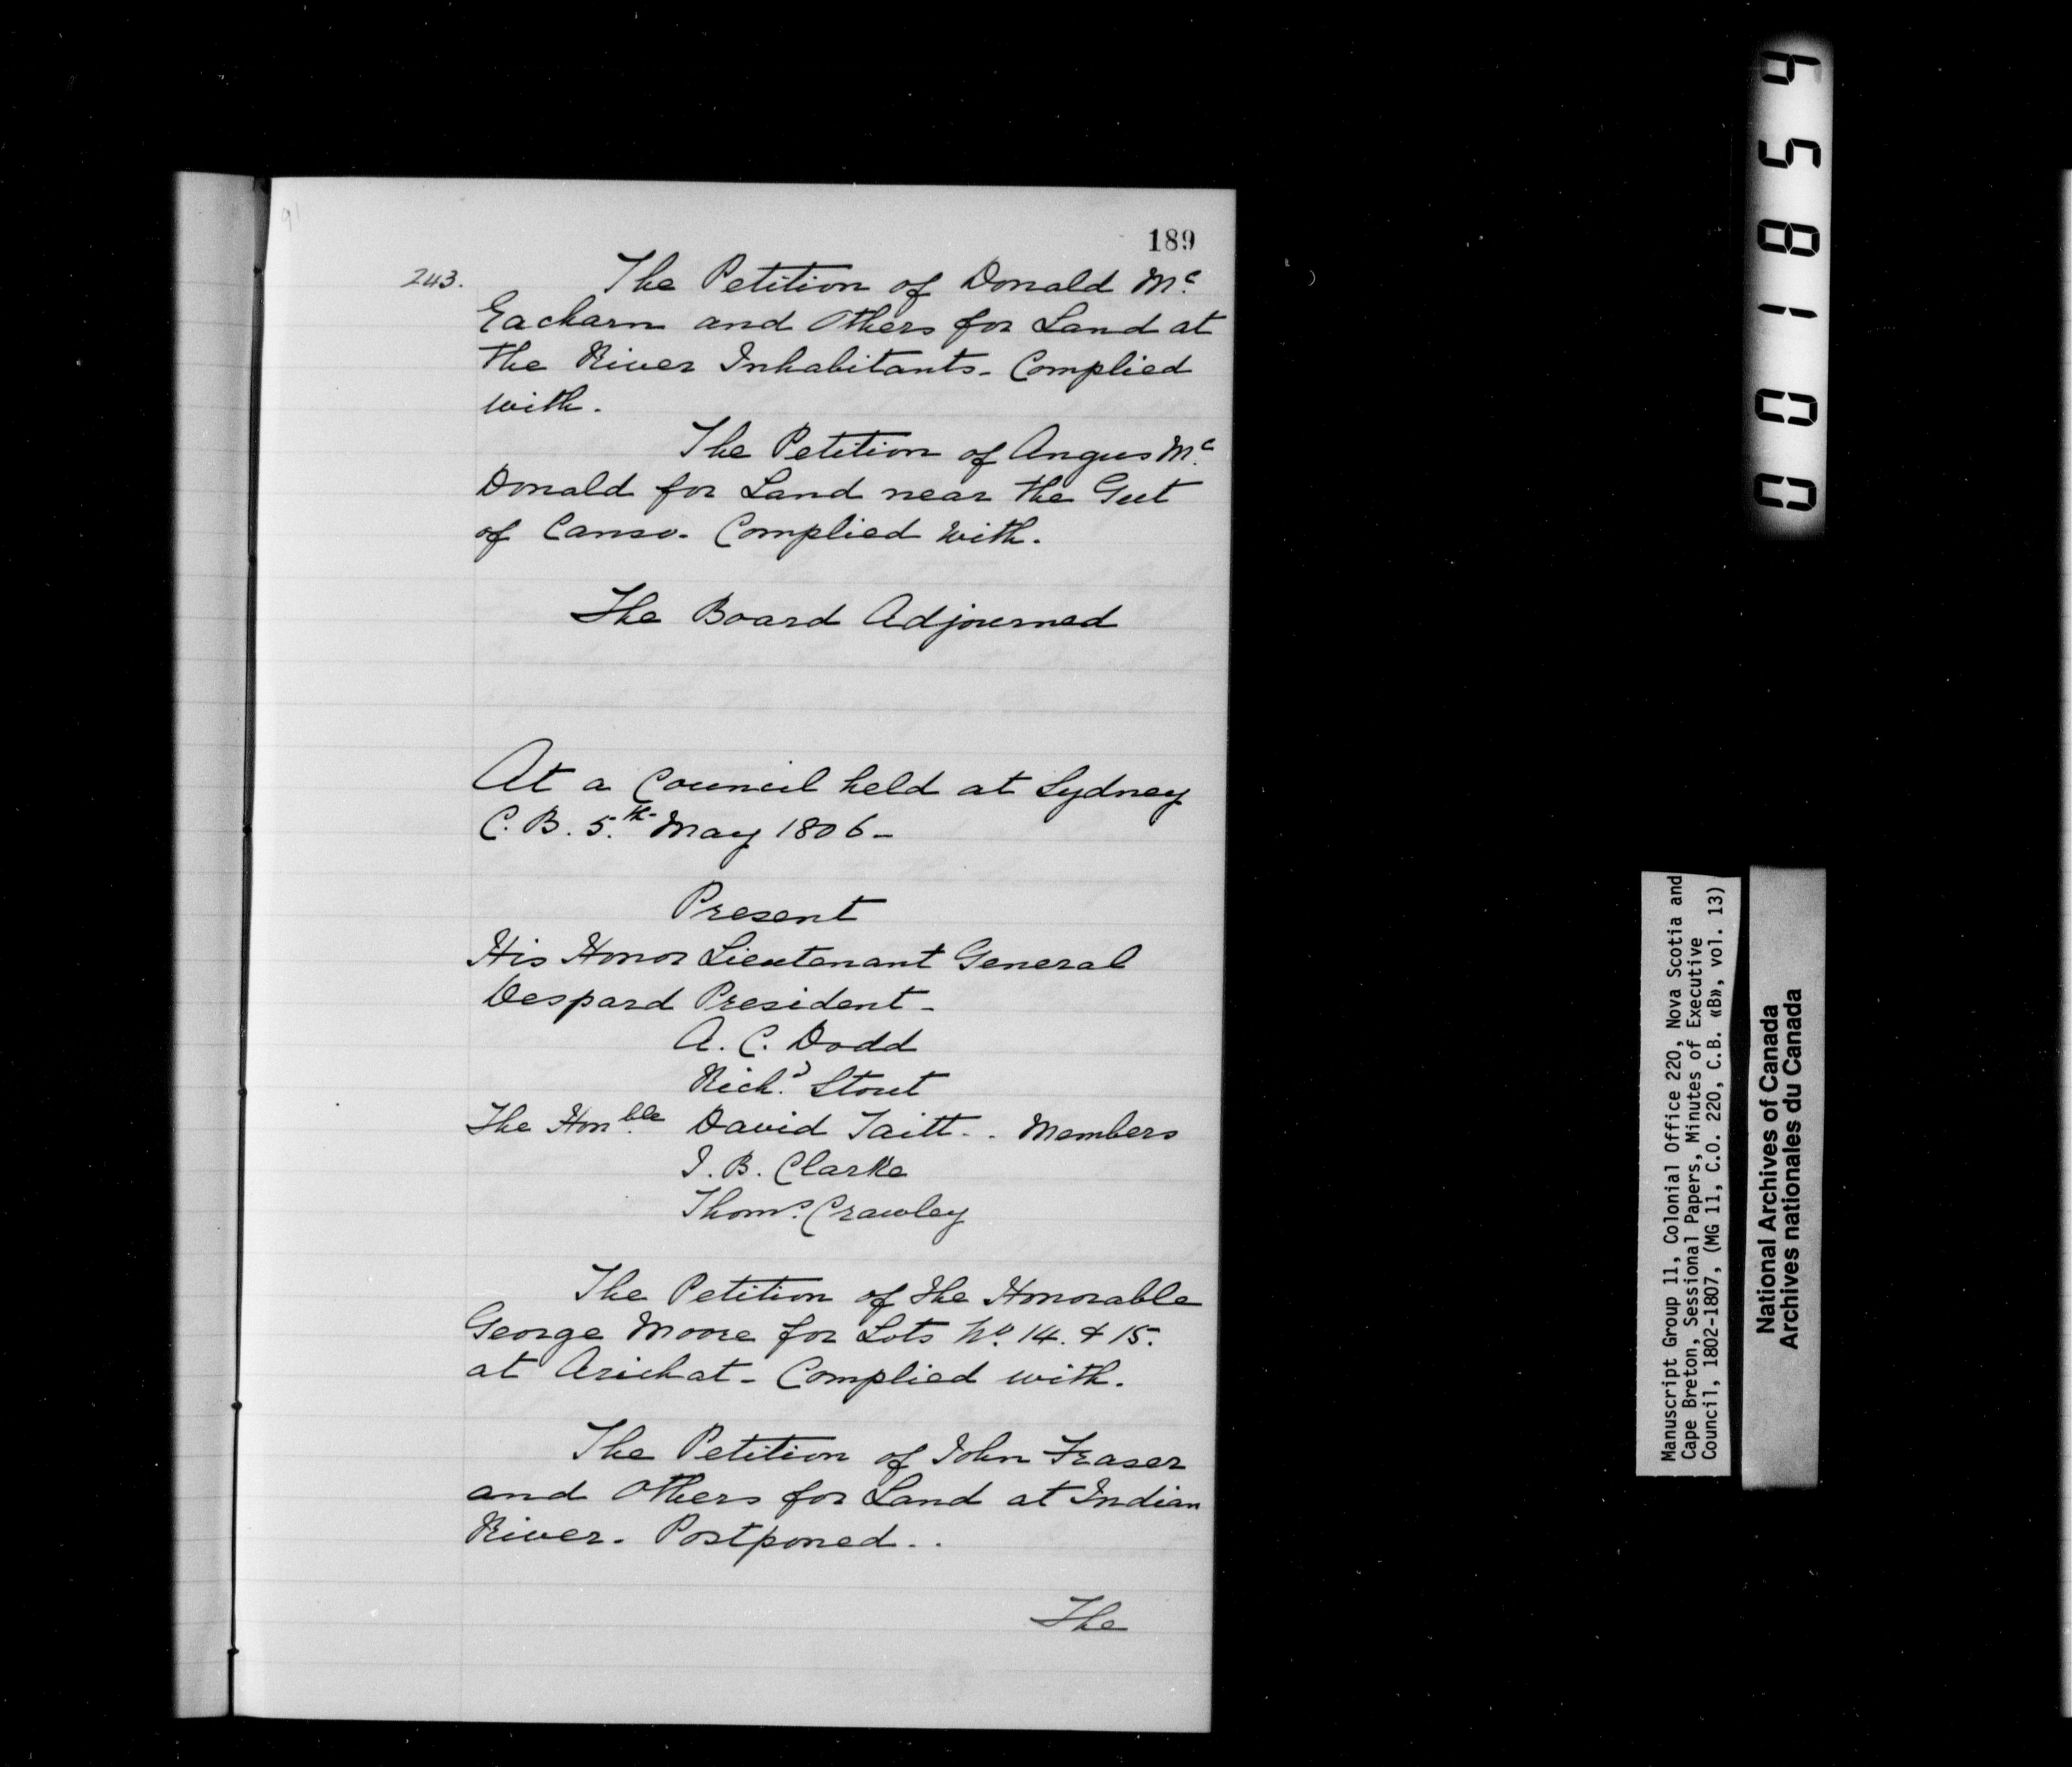 91
189
243.
The Petition of Donald Mc.
Eacharn and Others for Land at
the River Inhabitants - Complied
with.
The Petition of Angus Mc.
Donald for Land near the Gut
of Canso. Complied with.
The Board Adjourned
At a Council held at Sydney
C. B. 5th. May 1806 -
Present
His Honor Lieutenant General
Despard President -
A. C. Dodd
Richd. Stout
The Honble. David Taitt . . Members
I. B. Clarke
Thoms. Crawley
The Petition of the Honorable
George Moore for Lots No. 14. & 15.
at Arichat - Complied with.
The Petition of John Fraser
and Others for Land at Indian
River. Postponed . .
The
001854
Manuscript Group 11, Colonial Office 220, Nova Scotia and
Cape Breton, Sessional Papers, Minutes of Executive
Council, 1802-1807, (MG 11, C.O. 220, C.B. «B», vol. 13)
National Archives of Canada
Archives nationales du Canada